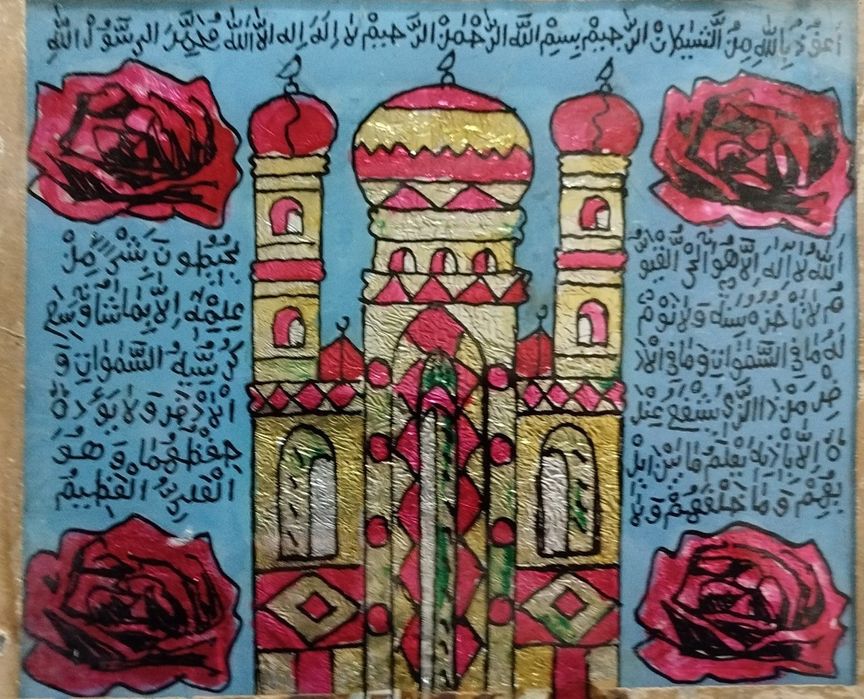 اَعُوْذُ بِاللّٰهِ مِنَ الشَّيْطَانْ الرَّجِيْمْ بِسِمْ اللّٰهِ الرَّحْمٰنْ الرَّحِيمْ لَا اِلَهَ اِله اِلاَّ اللّٰه مُحَمَّدَ الرسُوْل اللّٰه
اَللّٰهُ لَا اِلٰهَ اِلاَّ هُوَ الْحَىُّ الْقَيُّو
مُ لَا تَاْخُذُهُ سِنَةٌ وَلَا نَوْمٌ
لَهُ مَا فِى السَّمٰوَاتِ وَمَا فِى الْاَرْ
ضِ مَنْ ذَا الَّذِى يَشْفَعُ عِنْدَ
هُ اِلاَّ بِاِذْنِهِ يَعْلَمُ مَا بَيْنَ اَيْدِ
يْهِمْ وَ مَا خَلْفَهُمْ وَلَا
يُحِيْطُونَ بِشَىْءٍ مِنْ
عِلْمِهِ اِلاَّ بِمَا شَا وَسِعَ
كُرْسِيُّهُ السَّمٰوَاتِ وَ
الْاَرْضَ وَلَا يَؤُدُهُ
حِفْظُهُمَا وَهُوَ
الْعَلِىُّ الْعَظِيْمُ